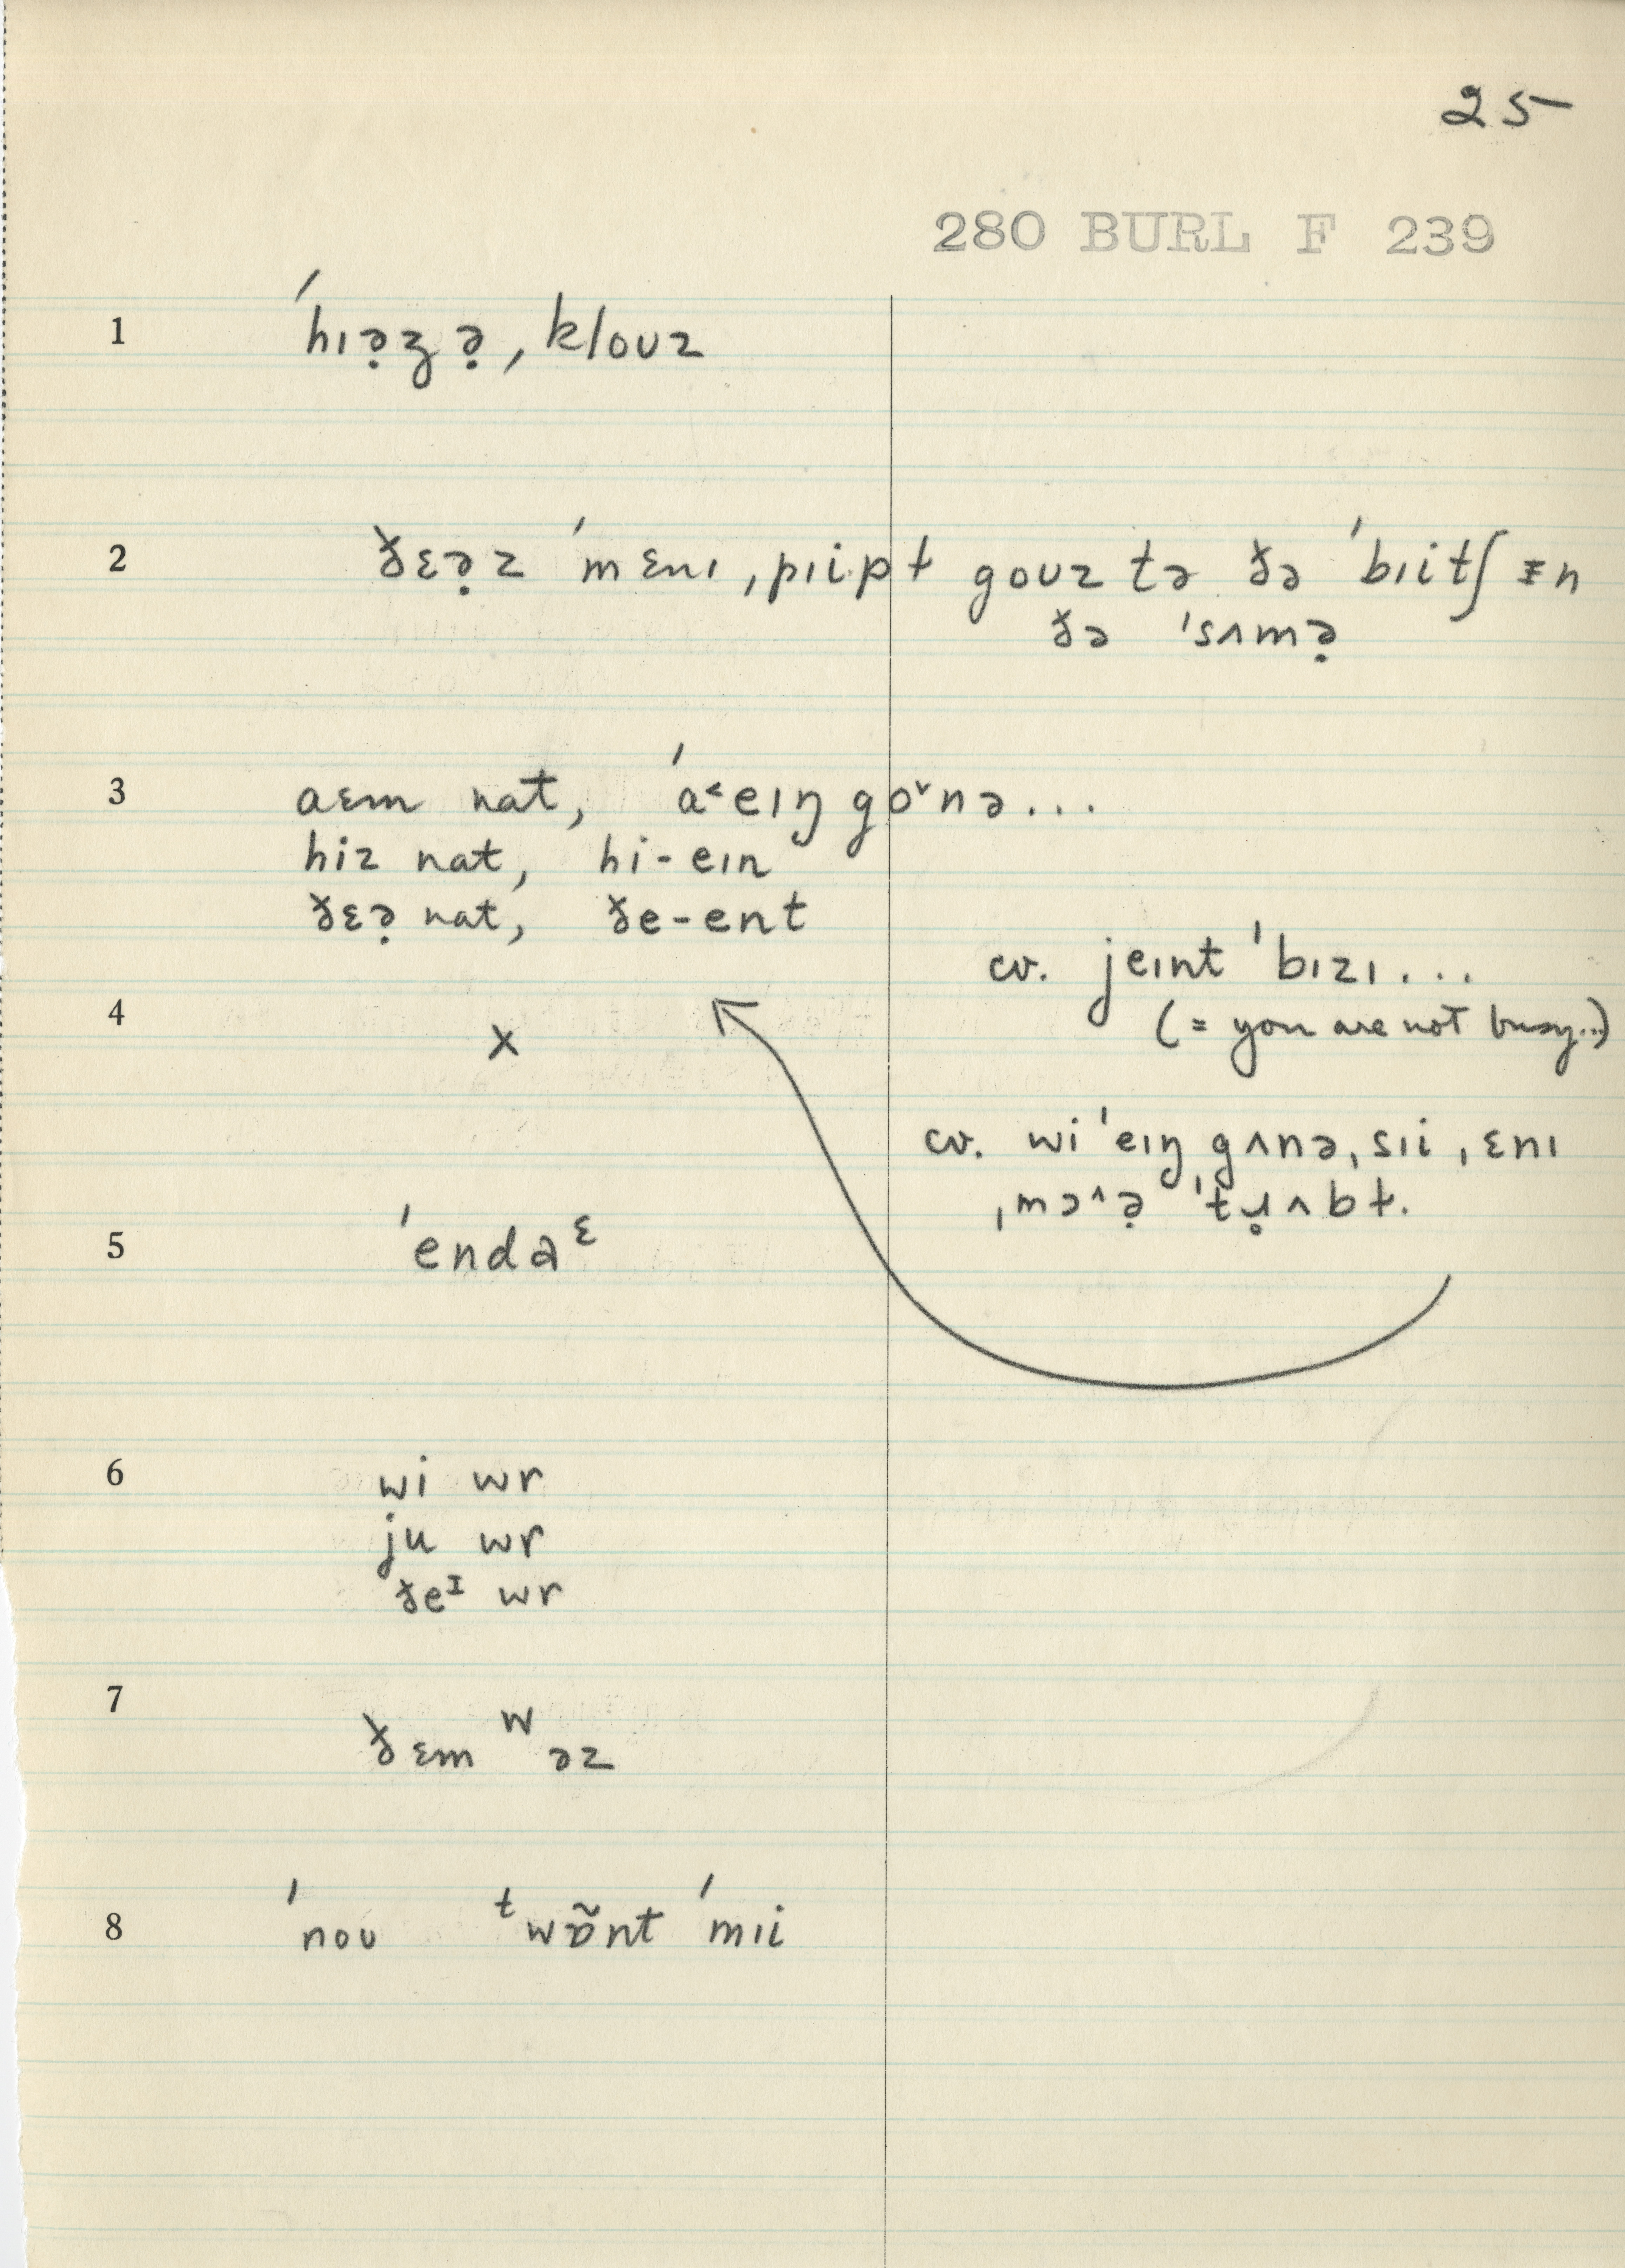 25
280 BURL F 239
1 ˈhɪə̣ʒə̣ ˌkloʊz
2 ðɛə̣z ˈmɛnɪ ˌpɪipɫ goʊz tə ðə ˈbɪitʃ ɪn
ðə ˈsʌmə̣
3 aɛm nat, ˈa˂eɪŋ go˅nə...
hiz nat, hi-eɪn
ðɛə̣ nat, ðe-ent
cv. jeɪnt ˈbɪzɪ...
(= you are not busy...)
4 x
cv. wiˈeɪŋ gʌnə ˌsɪi ˌɛnɪ
ˌmɔ^ə̣ ˈtɹ̣ʌbɫ.
5 ˈendaᵋ
6 wi wr
ju wr
ðeᶦ wr
7 ðɛm ʷəz
8 ˈnoʊ ᵗwɒ̃nt ˈmɪi